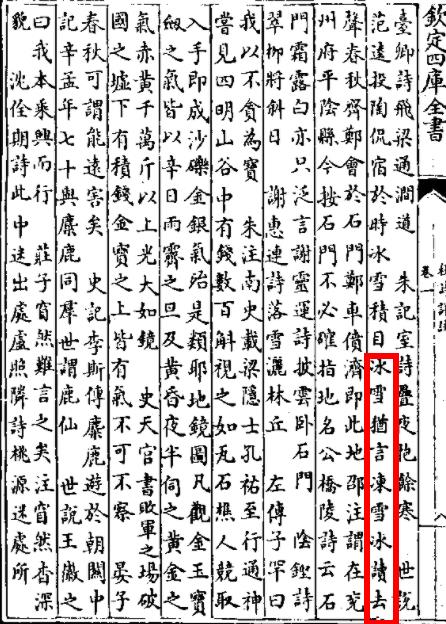 欽定四庫全書
卷一
臺卿詩飛梁通澗道 朱記室詩疊夜抱餘寒 世說
范逵投陶侃宿於時氷雪積日氷雪猶言凍雪氷讀去
聲春秋齊鄭會於石門鄭車僨濟即此地邵注謂在兖
州府平陰縣今按石門不必確指地名公橋陵詩云石
門霜露白亦只泛言謝靈運詩披雲臥石門 陰鏗詩
翠柳將斜日 謝惠連詩落雪灑林丘 左傳子罕曰
我以不貪為寶 朱注南史載梁隱士孔祐至行通神
嘗見四明山谷中有錢數百斛視之如瓦石樵人競取
入手即成沙礫金銀氣殆是類耶地鏡圖凡觀金玉寶
劔之氣皆以辛日雨霽之旦及黄昏夜半伺之黄金之
氣赤黄千萬斤以上光大如鏡 史天官書敗軍之場破
國之墟下有積錢金寶之上皆有氣不可不察 晏子
春秋可謂能遠害矣 史記李斯傳麋鹿遊於朝闗中
記辛孟年七十與麋鹿同羣世謂鹿仙 世說王徽之
曰我本乗興而行 莊子窅然難言之矣注窅然杳深
貌 沈佺期詩此中迷出處盧照隣詩桃源迷處所